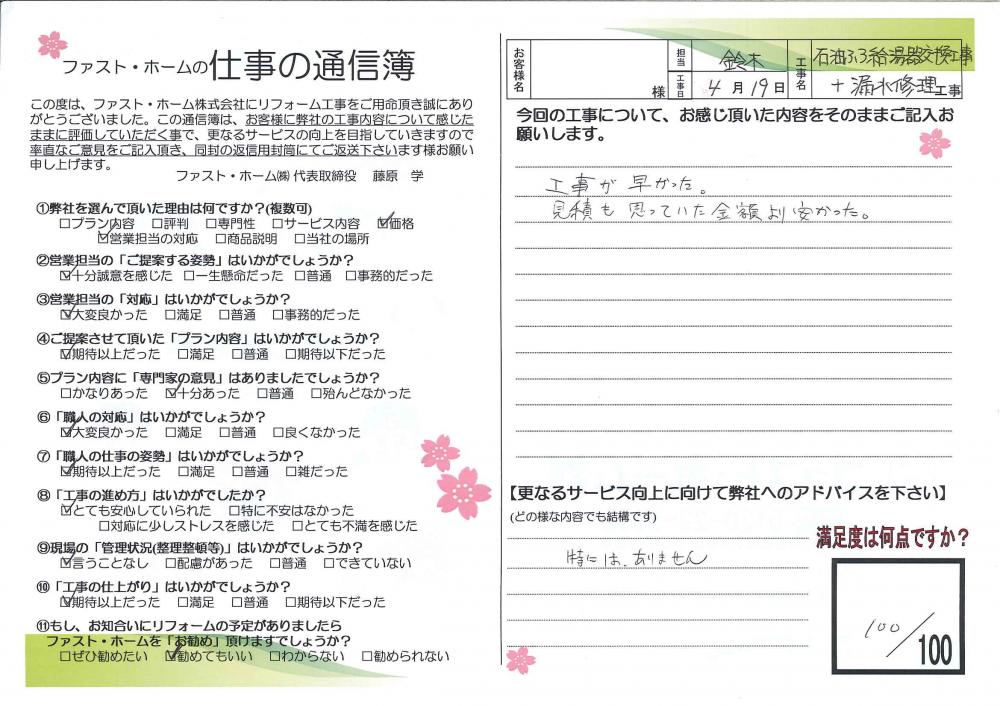 ファスト・ホームの仕事の通信簿
この度は、ファスト・ホーム株式会社にリフォーム工事をご用命頂き誠にあり
がとうございました。この通信簿は、お客様に弊社の工事内容について感じた
ままに評価していただく事で、更なるサービスの向上を目指していきますので
率直なご意見をご記入頂き、同封の返信用封筒にてご返送下さいます様お願い
申し上げます。
ファスト・ホーム㈱ 代表取締役 藤原 学
①弊社を選んで頂いた理由は何ですか?(複数可)
□プラン内容 □評判 □専門性 □サービス内容 ☑価格
☑営業担当の対応 □商品説明 □当社の場所
②営業担当の「ご提案する姿勢」はいかがでしょうか?
☑十分誠意を感じた □一生懸命だった □普通 □事務的だった
③営業担当の「対応」はいかがでしょうか?
☑大変良かった □満足 □普通 □事務的だった
④ご提案させて頂いた「プラン内容」はいかがでしょうか?
☑期待以上だった □満足 □普通 □期待以下だった
⑤プラン内容に「専門家の意見」はありましたでしょうか?
□かなりあった ☑十分あった □普通 □殆んどなかった
⑥「職人の対応」はいかがでしょうか?
☑大変良かった □満足 □普通 □良くなかった
⑦「職人の仕事の姿勢」はいかがでしょうか?
☑期待以上だった □満足 □普通 □雑だった
⑧「工事の進め方」はいかがでしたか?
☑とても安心していられた □特に不安はなかった
□対応に少しストレスを感じた □とても不満を感じた
⑨現場の「管理状況(整理整頓等)」はいかがでしょうか?
☑言うことなし □配慮があった □普通 □できていない
⑩「工事の仕上がり」はいかがでしょうか?
☑期待以上だった □満足 □普通 □期待以下だった
⑪もし、お知合いにリフォームの予定がありましたら
ファスト・ホームを「お勧め」頂けますでしょうか?
□ぜひ勧めたい ☑勧めてもいい □わからない □勧められない
お客様名 様 担当 鈴木 工事日 4月19日 工事名 石油ふろ給湯器交換工事
+漏水修理工事
今回の工事について、お感じ頂いた内容をそのままご記入お
願いします。
工事が早かった。
見積も思っていた金額より安かった。
【更なるサービス向上に向けて弊社へのアドバイスを下さい】
(どの様な内容でも結構です)
特には、ありません
満足度は何点ですか?
100/100